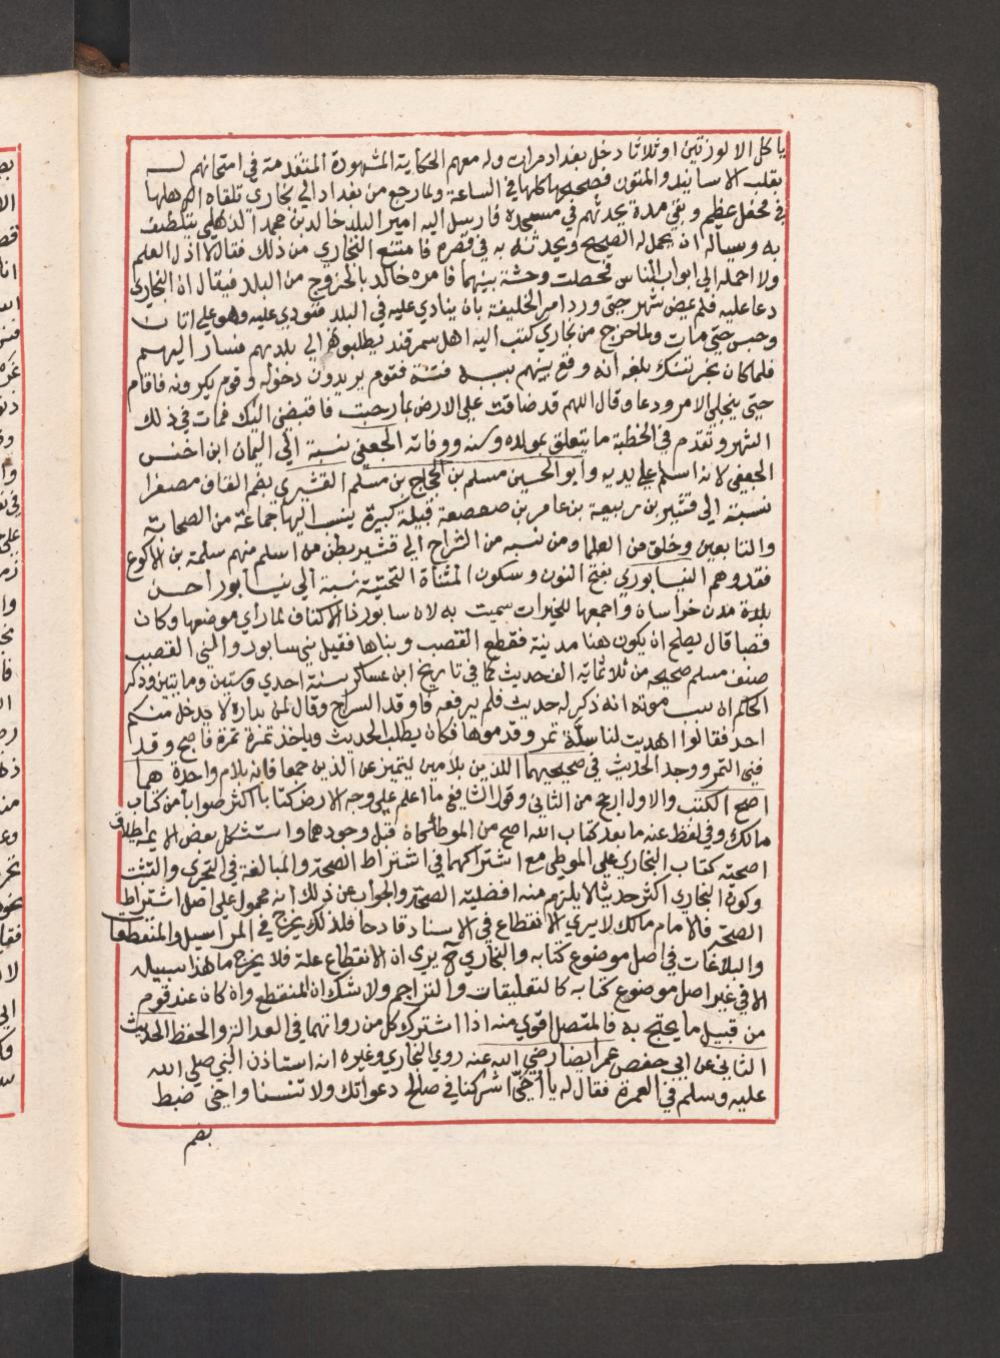 ياكل الا لوزتين او ثلاثا دخل بغداد مرات وله معهم الحكاية المشهورة المتقدمة في امتحانهم له
بقلب الاسانيد والمتون فصححها كلها في الساعة ولما رجع من بغداد الي بخاري تلقاه اهلها
في محفل عظيم وبقي مدة يحدثهم في مسجده فارسل اليه امير البلد خالد بن محمد الذهلي يتلطف
به ويساله ان يحمل له الصحيح ويحدثه به في قصره فامتنع البخاري من ذلك فقال لا اذل العلم
ولا احمله الي ابواب الناس فحصلت وحشة بينهما فامره خالد بالخروج من البلد فيقال ان البخاري
دعا عليه فلم يمض شهر حتي ورد امر الخليفة بان ينادي عليه في البلد فنودي عليه وهو علي اتان
وحبس حتي مات ولما خرج من بخاري كتب اليه اهل سمرقند يطلبونه الي بلدهم فسار اليهم
فلما كان بخرتنك بلغه انه وقع بينهم بسببه فتنة فقوم يريدون دخوله وقوم يكرهونه فاقام
حتي ينجلي الامر ودعا وقال اللهم قد ضاقت علي الارض بما رحبت فاقبضني اليك فمات في ذلك
الشهر وتقدم في الخطبة ما يتعلق بمولده وسنه ووفاته الجعفي نسبة الي اليمان ابن اخنس
الجعفي لانه اسلم علي يديه وابو الحسين مسلم بن الحجاج بن مسلم القشيري بضم القاف مصغرا
نسبة الي قشير بن ربيعة بن عامر بن صعصعة قبيلة كبيرة ينسب اليها جماعة من الصحابة
والتابعين وخلق من العلما ومن نسبه من الشراح الي قشير بطن من اسلم منهم سلمة بن الاكوع
فقد وهم النيسابوري بفتح النون وسكون المثناة التحتية نسبة الي نيسابور احسن
بلدة مدن خراسان واجمعها للخيرات سميت به لان سابور ذا الاكتاف لما راي موضعها وكان
قصبا قال يصلح ان يكون هنا مدينة فقطع القصب وبناها فقيل ني سابور والني القصب
صنف مسلم صحيحه من ثلاثماية الف حديث كما في تاريخ ابن عساكر سنة احدي وستين ومايتين وذكر
الحاكم ان سبب موته انه ذكر له حديث فلم يعرفه فاوقد السراج وقال لمن بداره لا يدخل منكم
احد فقالوا اهديت لنا سلة تمر وقدموها فكان يطلب الحديث وياخذ تمرة تمرة فاصبح وقد
فني التمر ووجد الحديث في صحيحيهما اللذين بلامين ليتميز عن الذين جمعا فانه بلام واحدة هما
اصح الكتب والاول ارجح من الثاني وقول الشافعي ما اعلم علي وجه الارض كتابا اكثر صوابا من كتاب
مالك وفي لفظ عنه ما بعد كتاب الله اصح من الموطا كان قبل وجودهما واستشكل بعض الايمة اطلاق
اصحية كتاب البخاري علي الموطي مع اشتراكهما في اشتراط الصحة والمبالغة في التحري والتثبت
وكون البخاري اكثر حديثا لا يلزم منه افضلية الصحة والجواب عن ذلك انه محمول علي اصل اشتراط
الصحة فالامام مالك لا يري الانقطاع في الاسناد قادحا فلذلك يخرج في المراسيل والمنقطعات
والبلاغات في اصل موضوع كتابه والبخاري ح يري ان الانقطاع علة فلا يخرج ما هذا سبيله
الا في غير اصل موضوع كتابه كالتعليقات والتراجم ولا شك ان المنقطع وان كان عند قوم
من قبيل ما يحتج به فالمتصل اقوي منه اذا اشترك كل من رواتهما في العدالة والحفظ الحديث
الثاني عن ابي حفص عمر ايضا رضي الله عنه روي البخاري وغيره انه استاذن النبي صلي الله
عليه وسلم في العمرة فقال له يا اخيّ اشركنا في صالح دعواتك ولا تنسنا واخي ضبط
بضم